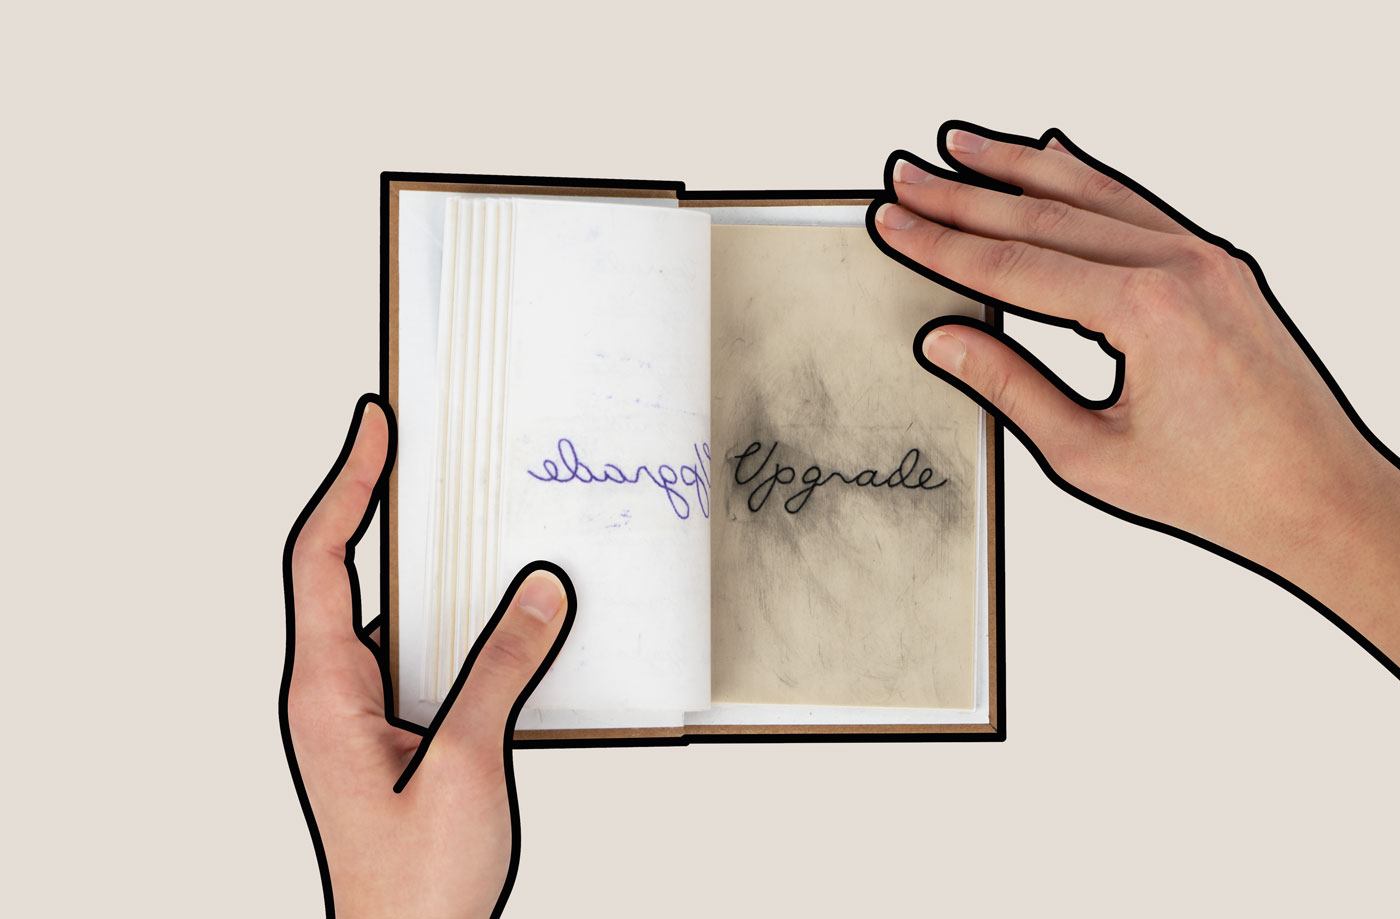 Upgrade
Upgrade